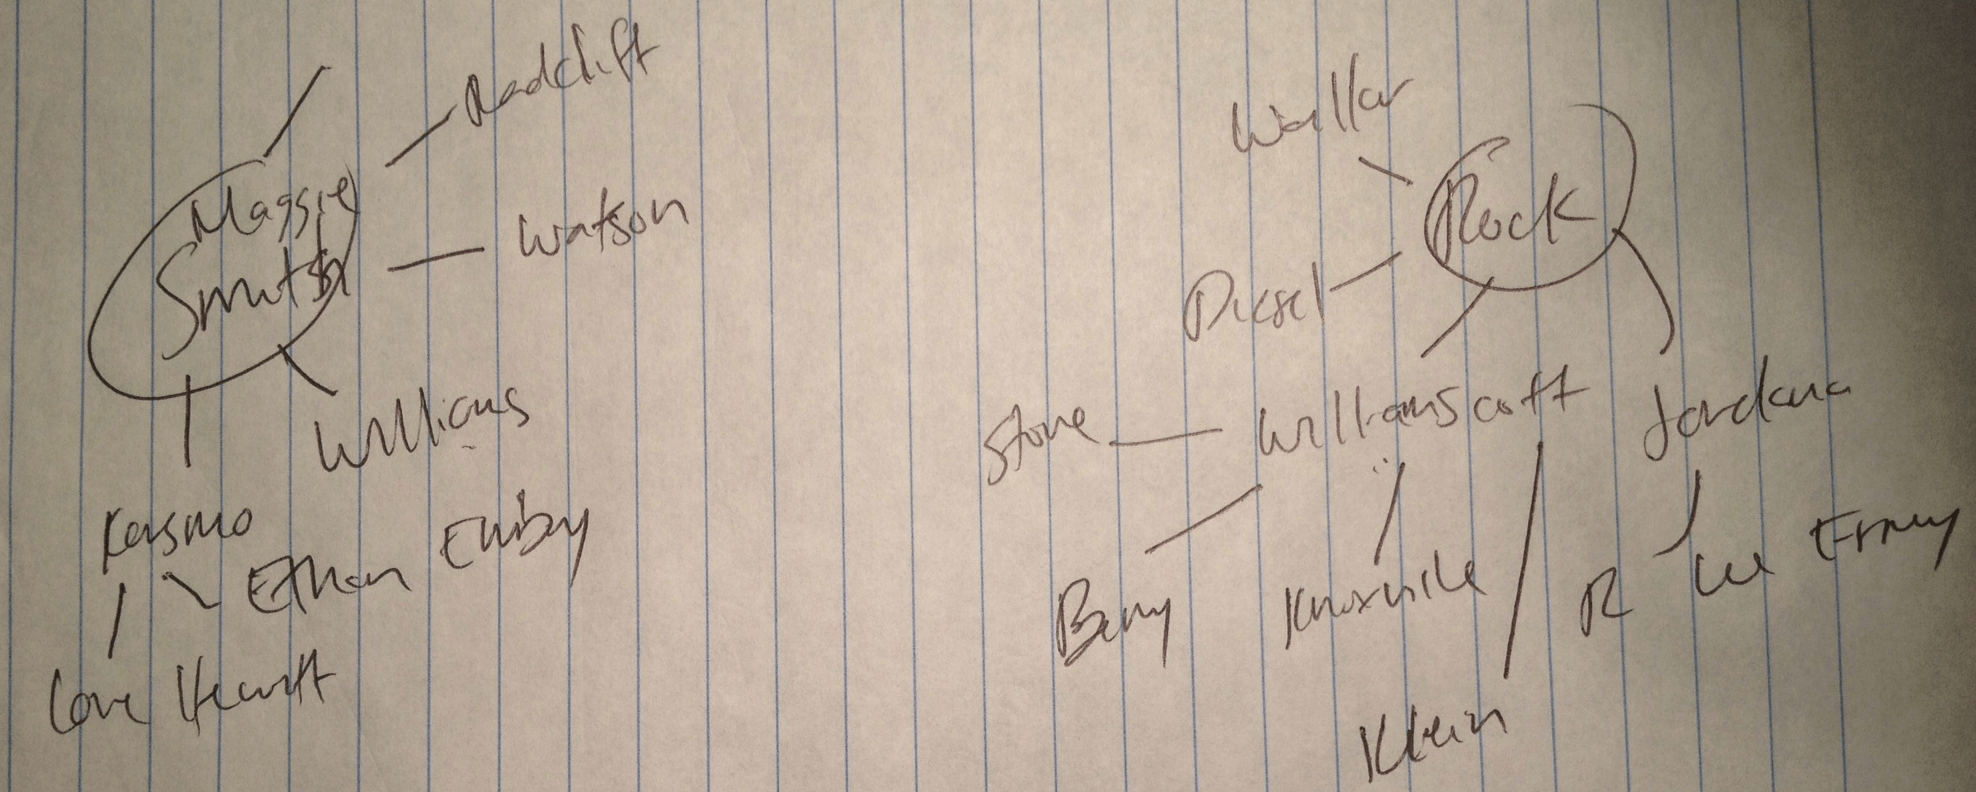 Radclift
Maggie
Smith
Watson
Williams
Ethan Embry
Love Hewitt
Walker
Rock
Diesel
Stone
Williamscott
Jordana
Berry
Knoxville
R Lee Ermey
Klein